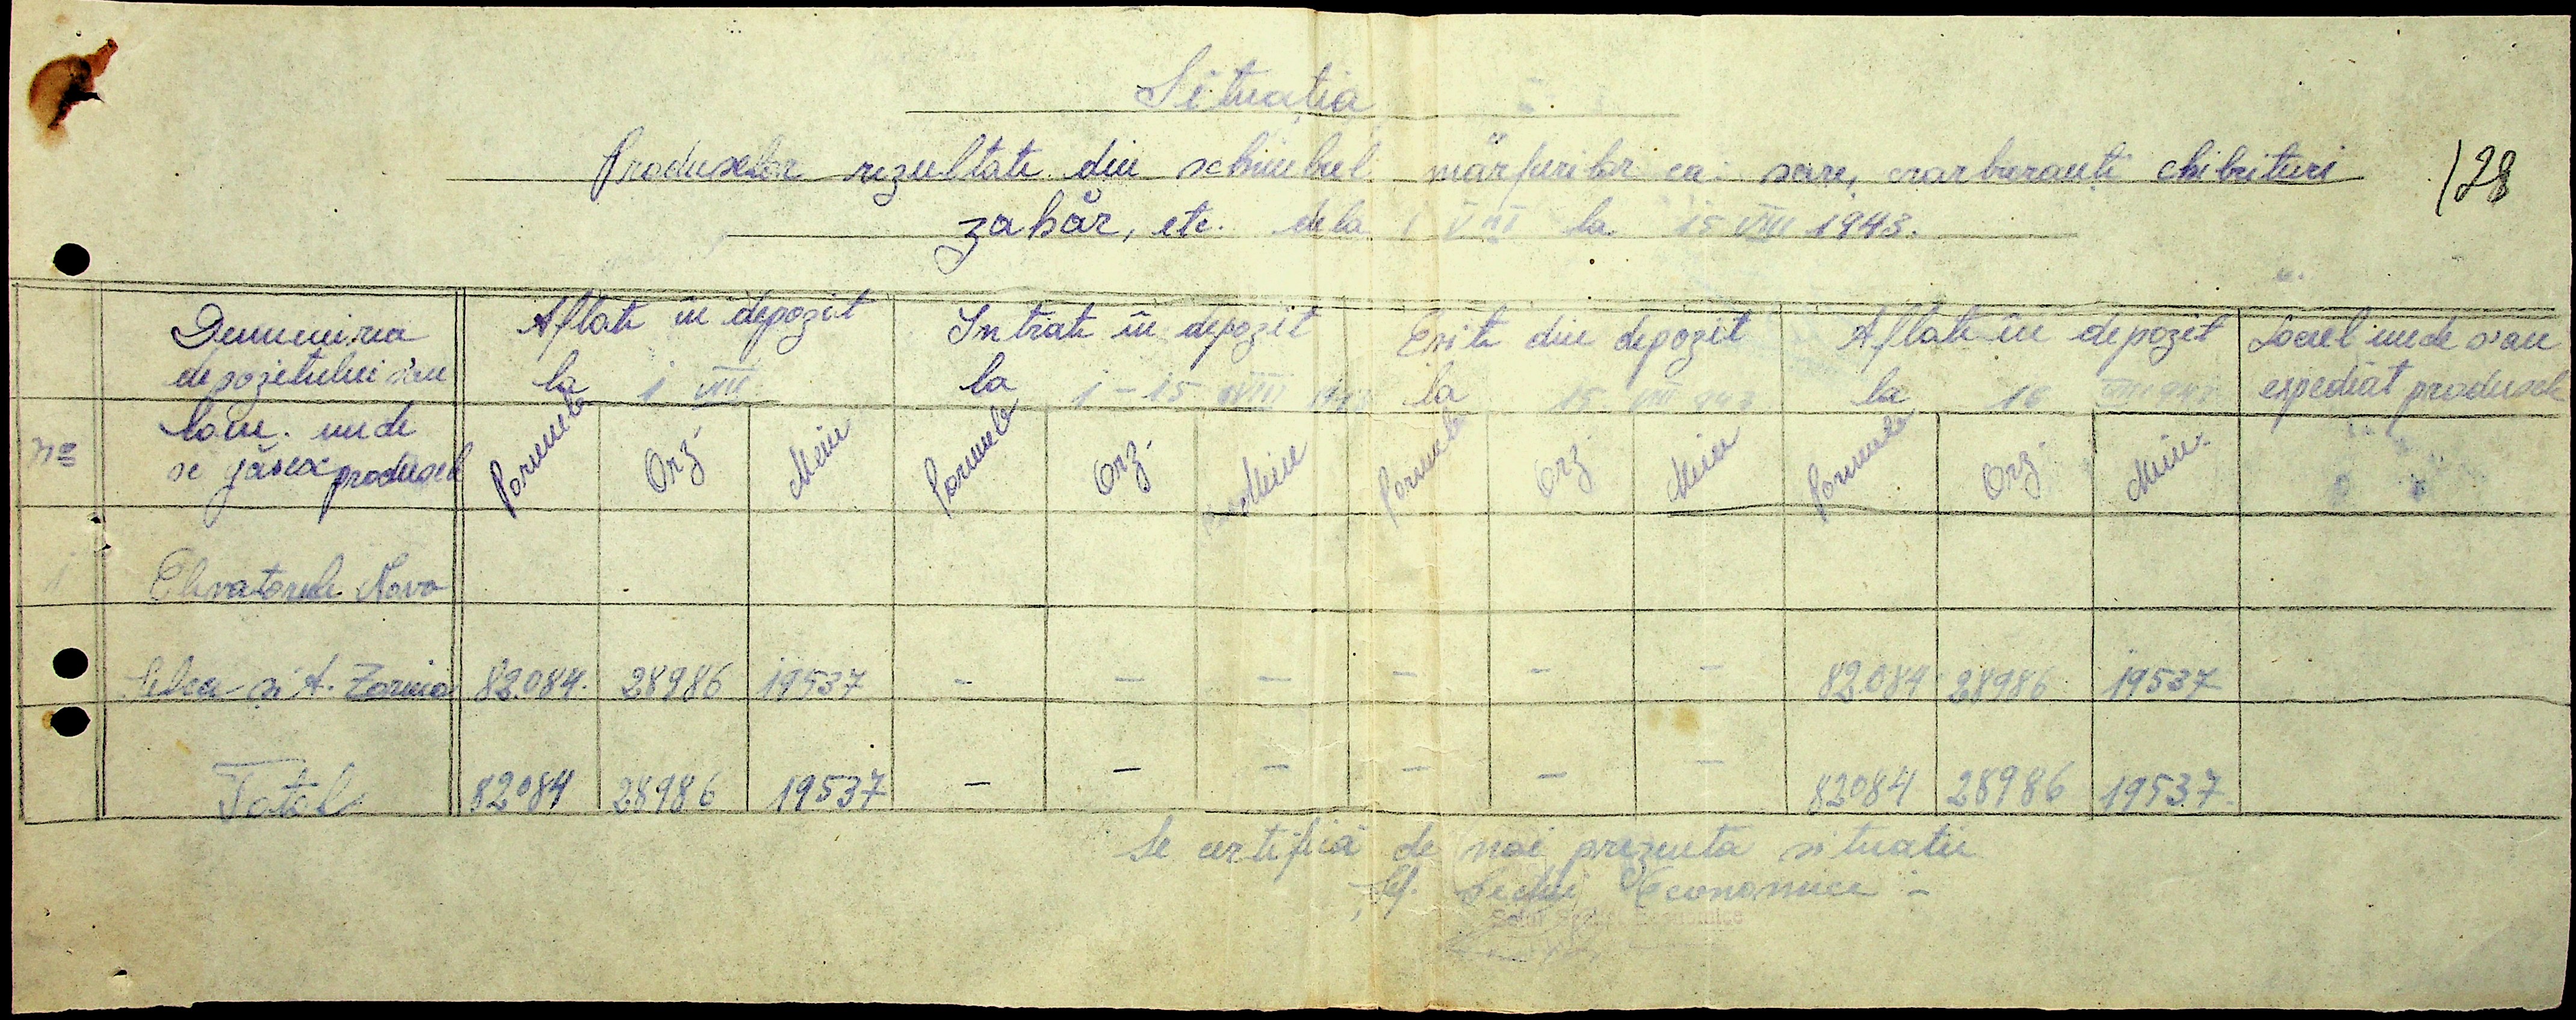 Situația
Produselor rezultate din schimbul mărfurilor ca: sare, carburanți chibrituri
128
zahăr, etc. dela 1 VIII la 15 VIII 1943.
No
Denumirea depozitului sau loc. unde se găsesc produsele
Aflate în depozit la 1 VIII
Intrate în depozit la 1-15 VIII 194
Esite din depozit la 15 VIII 943
Aflate în depozit la 16 VIII 943
Locul unde s'au expediat produsele
Porumb Orz Meiu Porumb Orz Meiu Porumb Orz Meiu Porumb Orz Meiu
1 Elevatorele Nova
Selca și A. Zorina 82.084. 28986 19537 - - - - - - 82.084 28986 19537
Total 82084 28986 19537 - - - - - - 82084 28986 19537.
Se certifică de noi prezenta situatie
Șef. Secției Economice -
Șeful Secției Economice